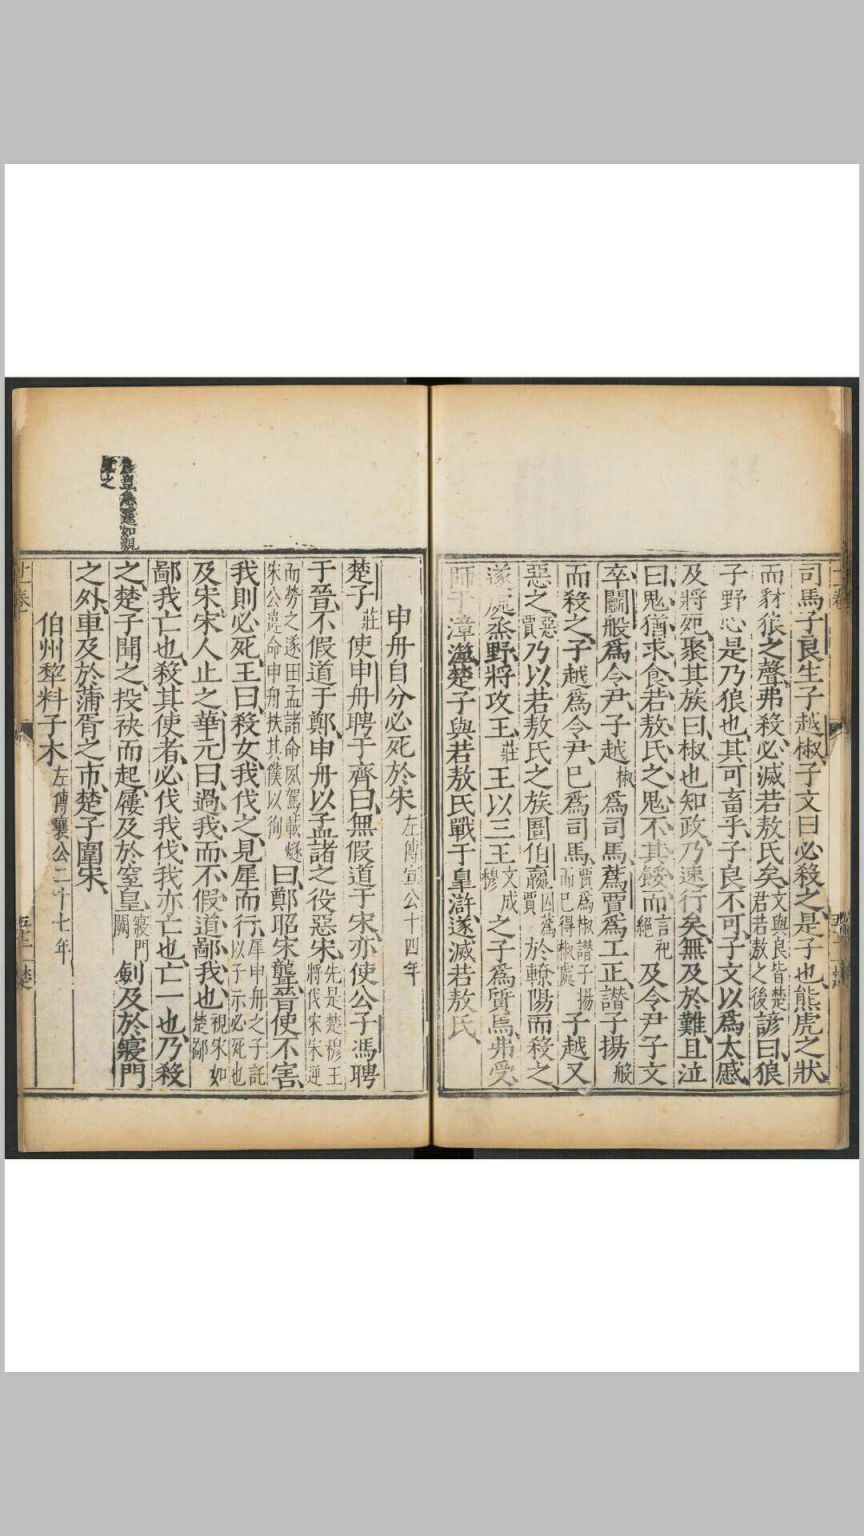 司馬子良生子越椒子文曰必殺之是子也熊虎之狀
而豺狼之聲弗殺必滅若敖氏矣文與良皆楚君若敖之後諺曰狼
子野心是乃狼也其可畜乎子良不可子文以爲太慼
及將死聚其族曰椒也知政乃速行矣無及於難且泣
曰鬼猶求食若敖氏之鬼不其餒而言祀絕及令尹子文
卒鬬般爲令尹子越椒爲司馬蒍賈爲工正譖子揚般
而殺之子越爲令尹已爲司馬賈爲椒譖子揚而已得椒處子越又
惡之惡賈乃以若敖氏之族圄伯嬴因蒍賈於轑陽而殺之
遂處烝野將攻王莊王以三王文成穆之子爲質焉弗受
師于漳澨楚子與若敖氏戰于臯滸遂滅若敖氏
申舟自分必死於宋左傳宣公十四年
楚子莊使申舟聘于齊曰無假道于宋亦使公子馮聘
于晉不假道于鄭申舟以孟諸之役惡宋先是楚穆王將伐宋宋逆
而勞之遂田孟諸命夙駕載燧宋公違命申舟抶其僕以徇曰鄭昭宋聾晉使不害
我則必死王曰殺女我伐之見犀而行犀申舟之子託以子示必死也
及宋宋人止之華元曰過我而不假道鄙我也視宋如楚鄙
鄙我亡也殺其使者必伐我伐我亦亡也亡一也乃殺
之楚子聞之投袂而起屨及於窒皇寢門闕劍及於寢門
之外車及於蒲胥之市楚子圍宋
伯州犂料子木左傳襄公二十七年